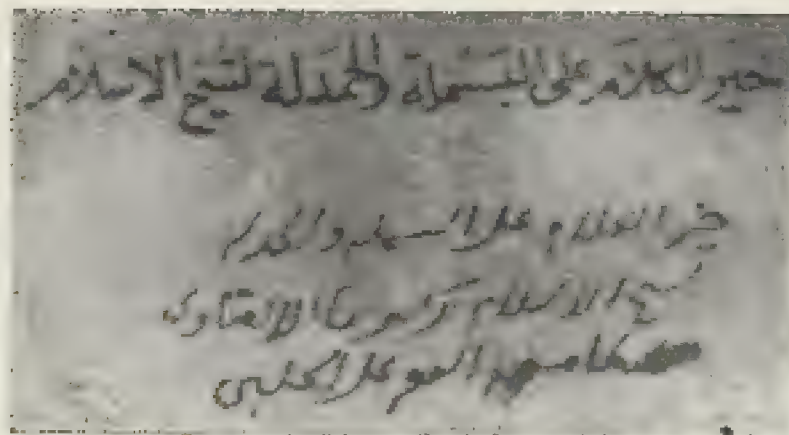 خير الكلام على البسملة والحمدلة لشيخ الاسلام
خير الكلام على البسملة والحمدلة
لشيخ الاسلام زكريا الانصاري
على الحلبي